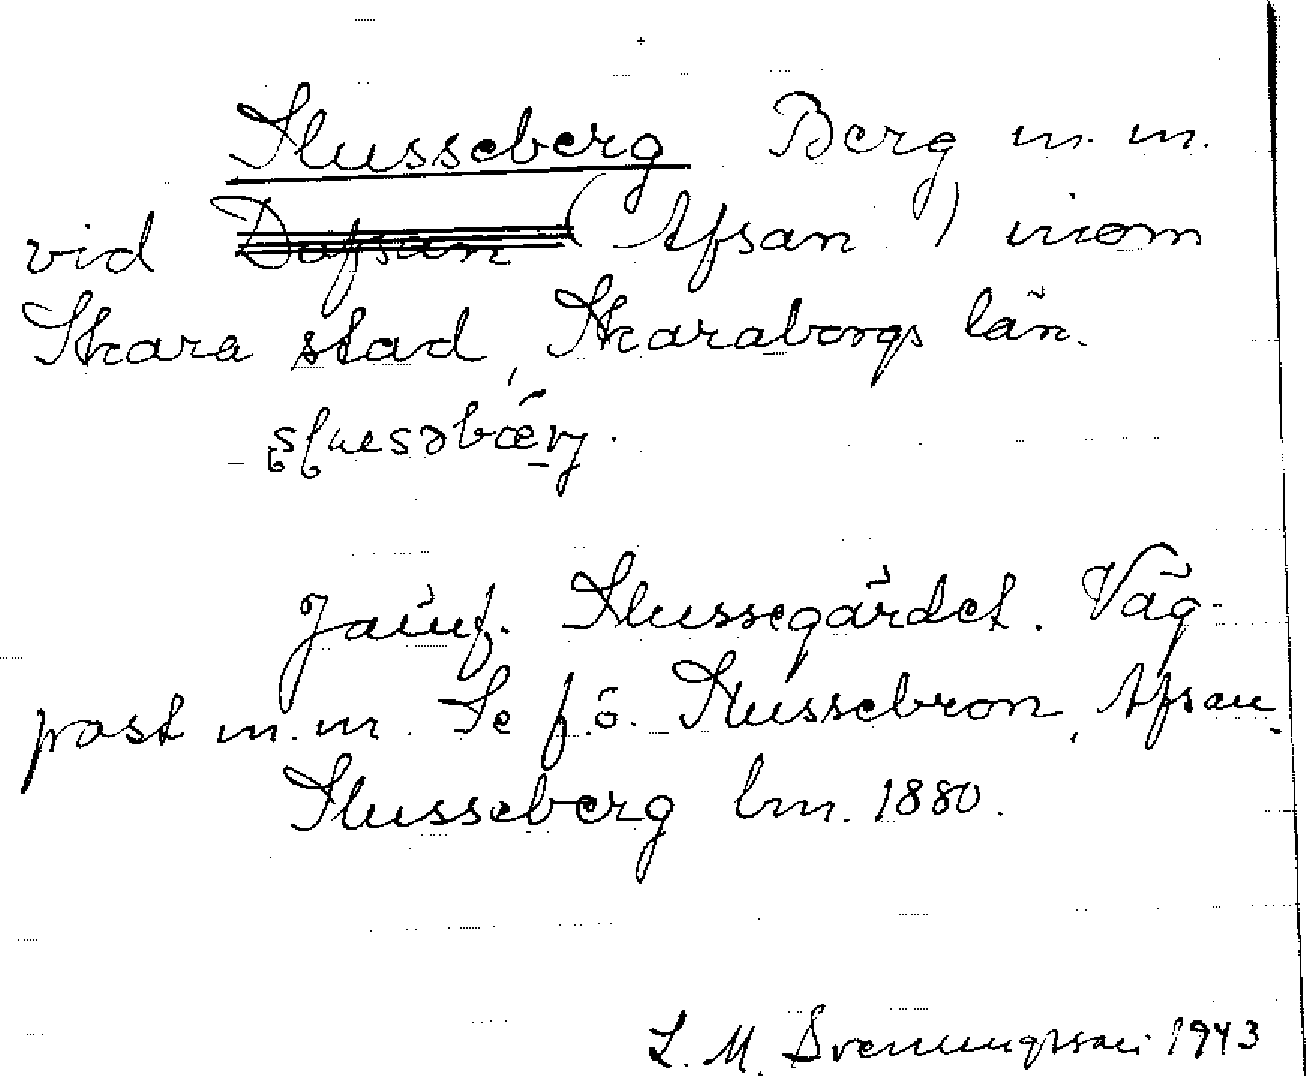 Slusseberg Berg m. m.
vid Dofsan (Afsan) inom
Skara stad, Skaraborgs län.
Jämf. Slussegärdet. Väg-
post m.m. Se f.ö. Slussebron, Afsan.
Slusseberg lm. 1880.
L. M. Svenungsson 1943